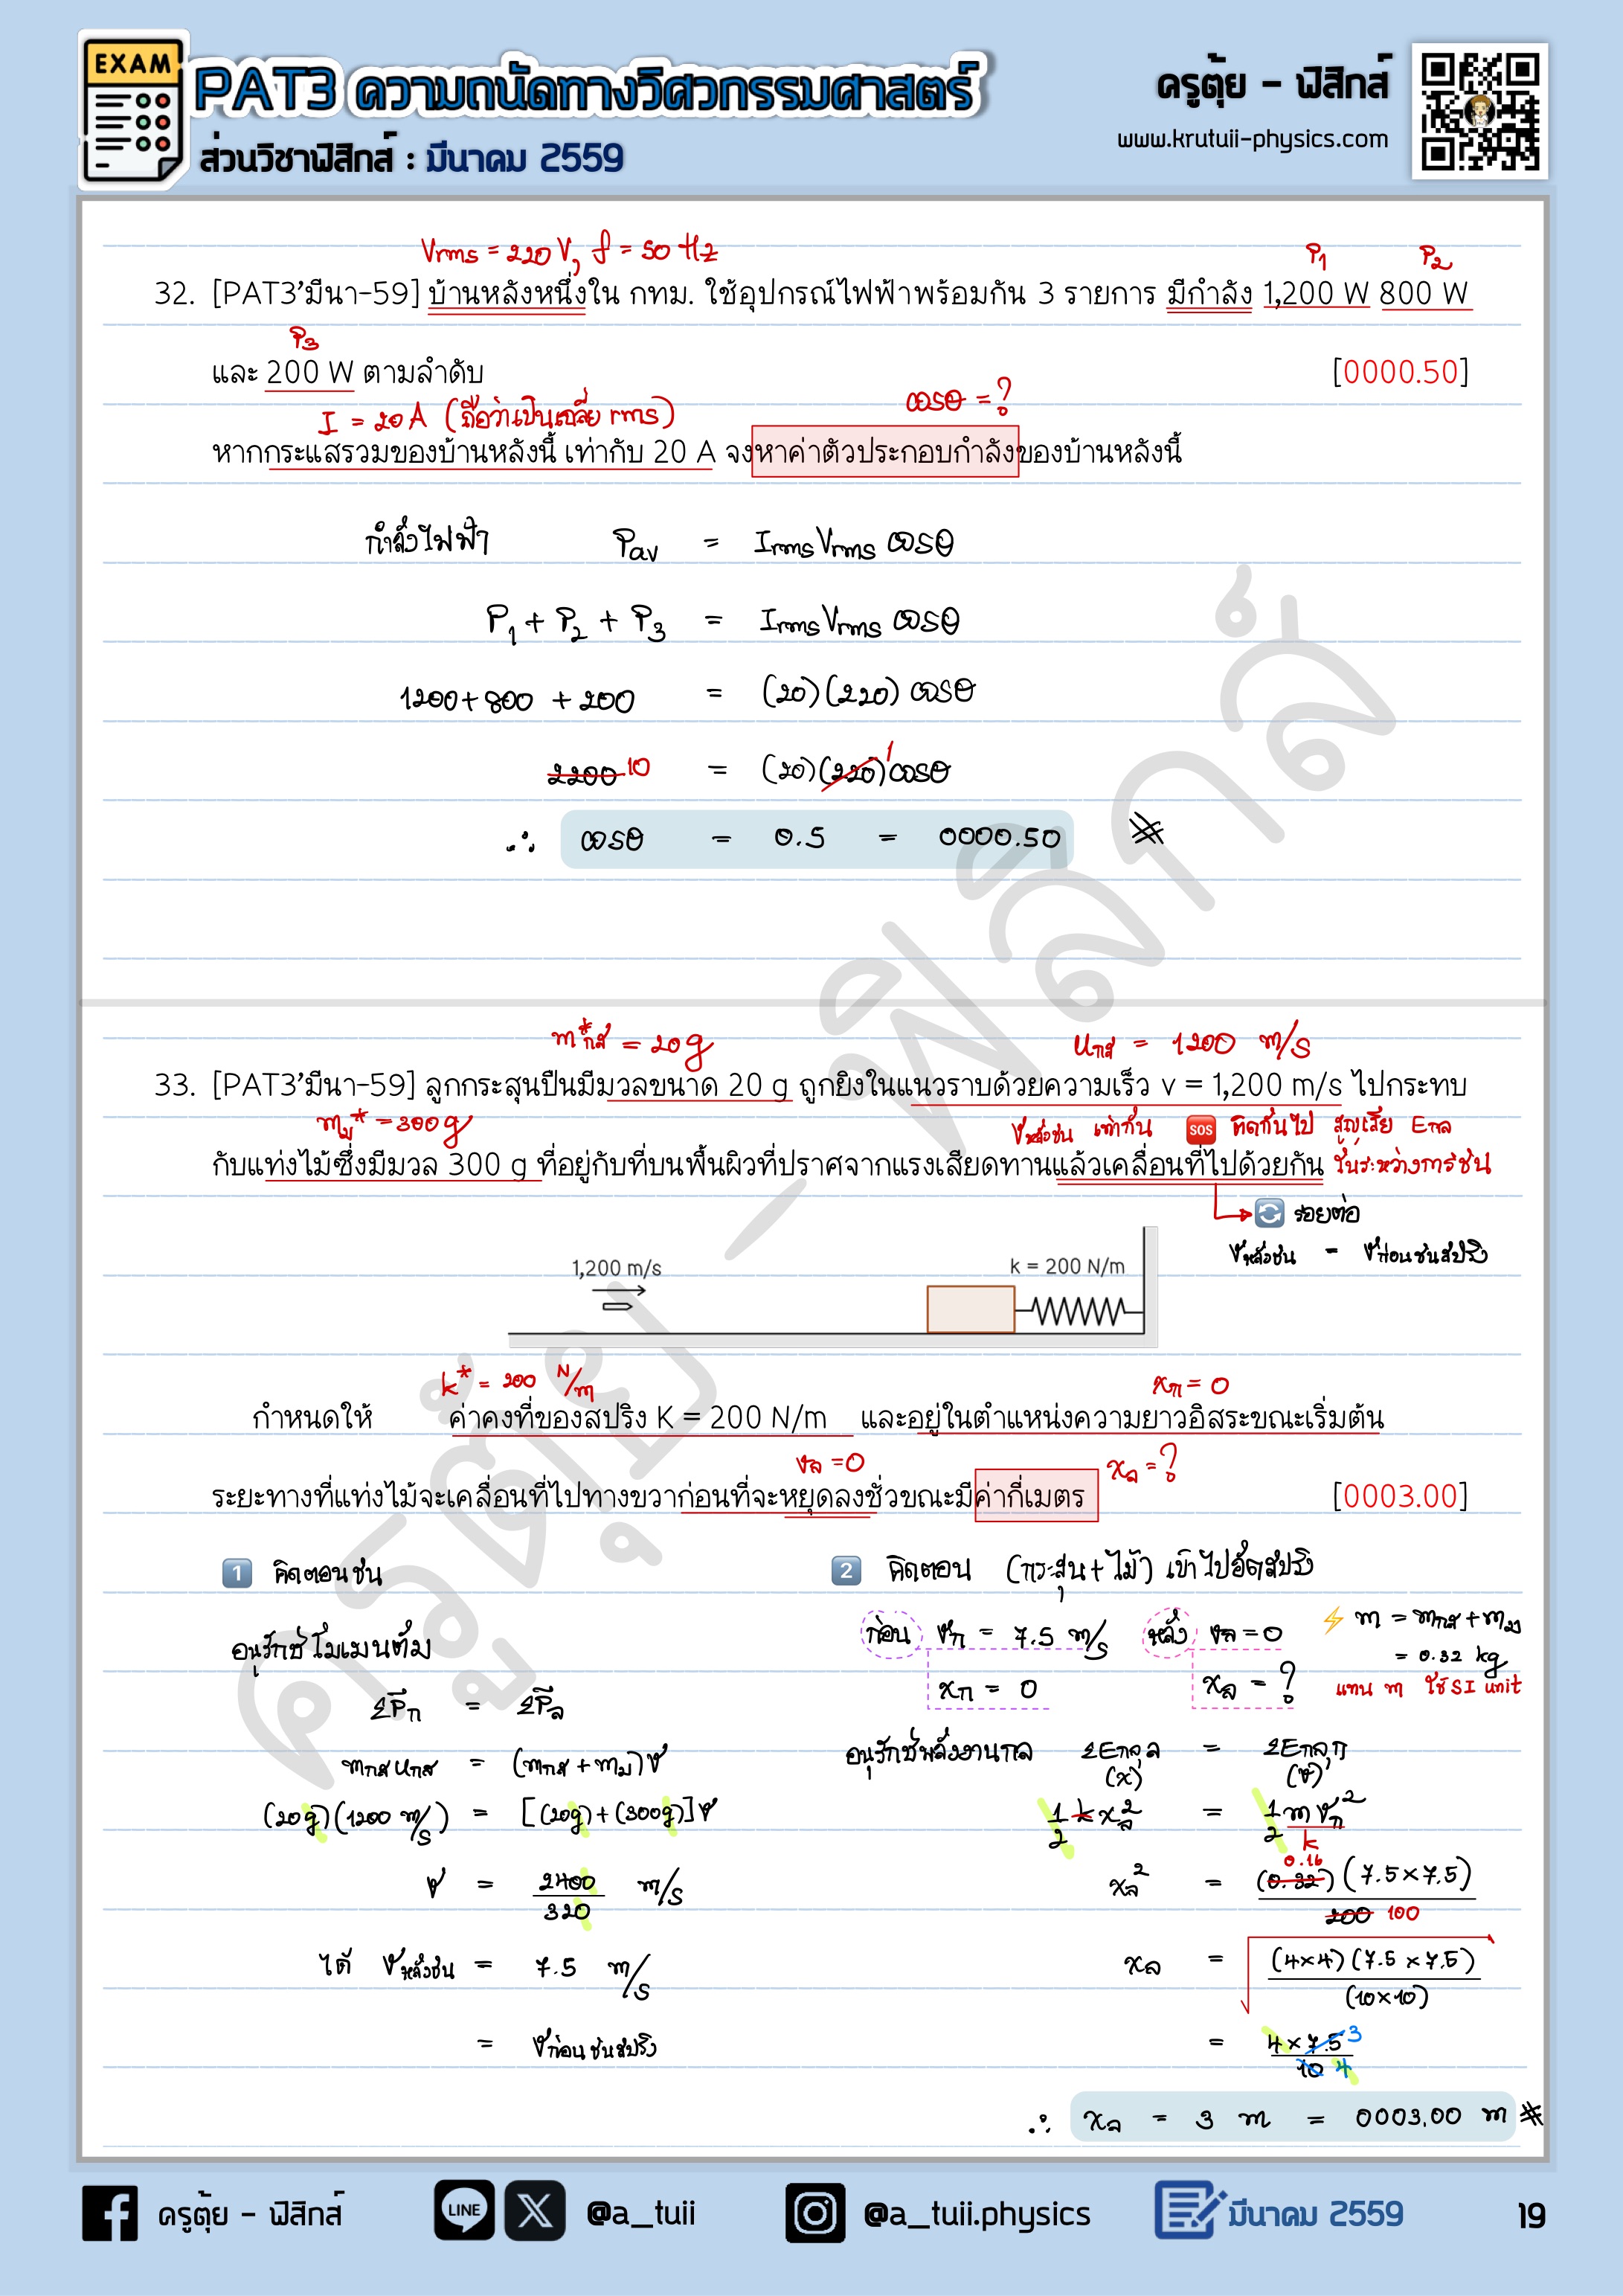 EXAM
PAT3 ความถนัดทางวิศวกรรมศาสตร์
ส่วนวิชาฟิสิกส์ : มีนาคม 2559
ครูตุ้ย - ฟิสิกส์
www.krutuii-physics.com
Vrms = 220 V, f = 50 Hz
P1 P2
32. [PAT3'มีนา-59] บ้านหลังหนึ่งใน กทม. ใช้อุปกรณ์ไฟฟ้าพร้อมกัน 3 รายการ มีกำลัง 1,200 W 800 W
P3
และ 200 W ตามลำดับ [0000.50]
I = 20 A (ถือว่าเป็นเฉลี่ย rms) cosθ = ?
หากกระแสรวมของบ้านหลังนี้ เท่ากับ 20 A จงหาค่าตัวประกอบกำลังของบ้านหลังนี้
กำลังไฟฟ้า Pav = Irms Vrms cosθ
P1 + P2 + P3 = Irms Vrms cosθ
1200 + 800 + 200 = (20)(220) cosθ
2200 10 = (20)(220) 1 cosθ
∴ cosθ = 0.5 = 0000.50
m*กส = 20 g uกส = 1200 m/s
33. [PAT3'มีนา-59] ลูกกระสุนปืนมีมวลขนาด 20 g ถูกยิงในแนวราบด้วยความเร็ว v = 1,200 m/s ไปกระทบ
mม* = 300 g vหลังชน เท่ากัน SOS ติดกันไป สูญเสีย Eกล
กับแท่งไม้ซึ่งมีมวล 300 g ที่อยู่กับที่บนพื้นผิวที่ปราศจากแรงเสียดทานแล้วเคลื่อนที่ไปด้วยกัน ในระหว่างการชน
รอยต่อ
vหลังชน = vก่อนชนสปริง
1,200 m/s
k = 200 N/m
k* = 200 N/m xก = 0
กำหนดให้ ค่าคงที่ของสปริง K = 200 N/m และอยู่ในตำแหน่งความยาวอิสระขณะเริ่มต้น
vล = 0 xล = ?
ระยะทางที่แท่งไม้จะเคลื่อนที่ไปทางขวาก่อนที่จะหยุดลงชั่วขณะมีค่ากี่เมตร [0003.00]
1 คิดตอนชน
อนุรักษ์โมเมนตัม
ΣPก = ΣPล
mกส uกส = (mกส + mม) v
(20g)(1200 m/s) = [(20g) + (300g)] v
v = 2400/320 m/s
ได้ vหลังชน = 7.5 m/s
= vก่อนชนสปริง
2 คิดตอน (กระสุน + ไม้) เข้าไปอัดสปริง
ก่อน vก = 7.5 m/s หลัง vล = 0 ⚡ m = mกส + mม
xก = 0 xล = ? = 0.32 kg
แทน m ใช้ SI unit
อนุรักษ์พลังงานกล ΣEกล,ล (x) = ΣEกล,ก (v)
1/2 k xล² = 1/2 m vก²
k
xล² = (0.32) 0.16 (7.5 × 7.5) / 200 100
xล = √(4×4)(7.5 × 7.5) / (10×10)
= 4 × 7.5 3 / 10 4
∴ xล = 3 m = 0003.00 m
ครูตุ้ย - ฟิสิกส์
ครูตุ้ย - ฟิสิกส์ LINE X @a_tuii @a_tuii.physics มีนาคม 2559 19